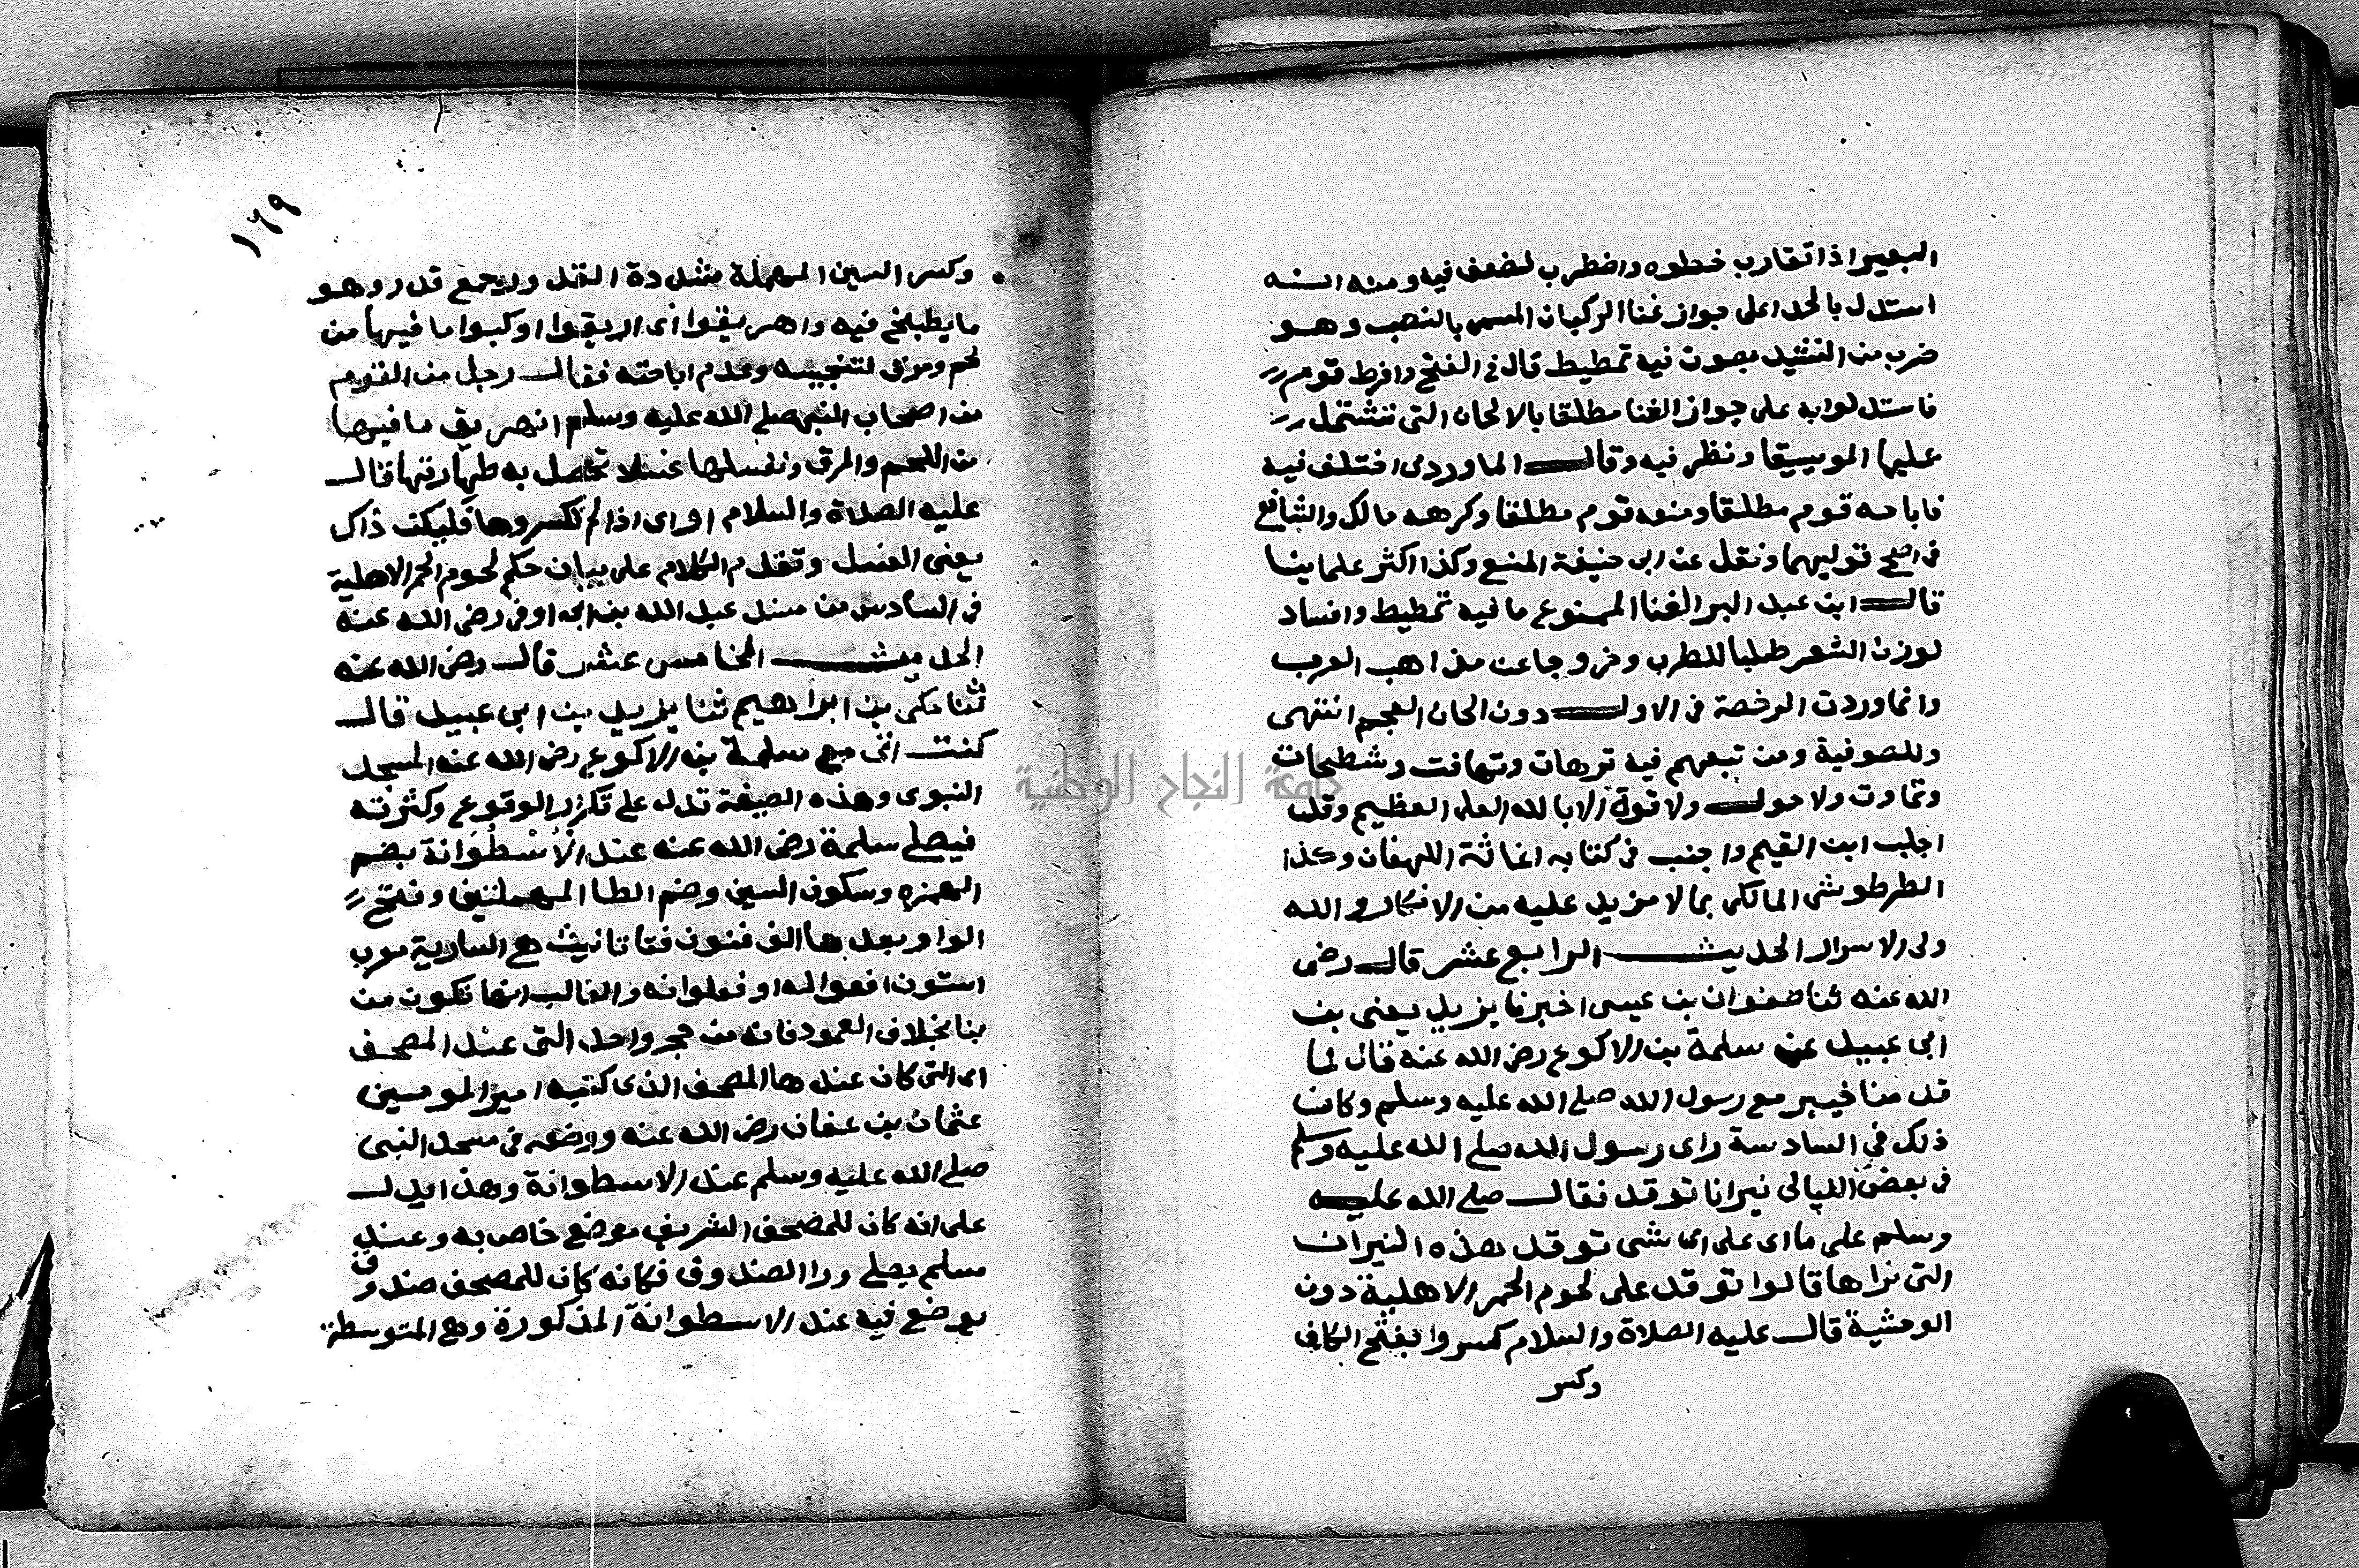 البعير اذا تقارب خطوه واضطرب لضعف فيه ومنه انه
استدل بالحدا على جواز غنا الركبان المسمى بالنصب وهو
ضرب من النشيد بصوت فيه تمطيط قال في الفتح وافرط قوم
فاستدلوا به على جواز الغنا مطلقا بالالحان التي تشتمل
عليها الموسيقا ونظر فيه وقال الماوردي اختلف فيه
فاباحه قوم مطلقا ومنعه قوم مطلقا وكرهه مالك والشافع
في اصح قوليهما ونقل عن ابي حنيفة المنع وكذا اكثر علماينا
قال ابن عبد البر الغنا الممنوع ما فيه تمطيط وافساد
لوزن الشعر طلبا للطرب وخروجا عن مذاهب العرب
وانما وردت الرخصة في الاول دون الحان العجم انتهى
وللصوفية ومن تبعهم فيه ترهات وتهافت وشطحات
وتمادت ولا حول ولا قوة الا بالله العلي العظيم وقد
اجلب ابن القيم واجنب في كتابه اغاثة اللهفان وكذا
الطرطوشي المالكي بما لا مزيد عليه من الانكار والله
ولي الاسرار الحديث الرابع عشر قال رضي
الله عنه ثنا صفوان بن عيسى اخبرنا يزيد يعني بن
ابي عبيد عن سلمة بن الاكوع رضي الله عنه قال لما
قدمنا خيبر مع رسول الله صلى الله عليه وسلم وكان
ذلك في السادسة راى رسول الله صلى الله عليه وسلم
في بعض الليالي نيرانا توقد فقال صلى الله عليه
وسلم على ما اى على اى شي توقد هذه النيران
التي نراها قالوا توقد على لحوم الحمر الاهلية دون
الوحشية قال عليه الصلاة والسلام كسروا بفتح الكاف
وكسر
١٦٩
وكسر السين المهملة مشددة القدور جمع قدر وهو
ما يطبخ فيه واهريقوا اى اريقوا او كبوا ما فيها من
لحم ومرق لتنجيسه وعدم اباحته فقال رجل من القوم
من اصحاب النبي صلى الله عليه وسلم انهريق ما فيها
من اللحم والمرق ونغسلها غسلا تحصل به طهارتها قال
عليه الصلاة والسلام او اى اذا لم تكسروها فليكن ذاك
يعني الغسل وتقدم الكلام على بيان حكم لحوم الحمر الاهلية
في السادس من مسند عبد الله بن ابي اوفى رضي الله عنه
الحديث الخامس عشر قال رضي الله عنه
ثنا مكي بن ابراهيم ثنا يزيد بن ابي عبيد قال
كنت اتى مع سلمة بن الاكوع رضي الله عنه المسجد
النبوي وهذه الصيغة تدل على تكرار الوقوع وكثرته
فيصلي سلمة رضي الله عنه عند الأُسْطُوَانة بضم
الهمزه وسكون السين وضم الطا المهملتين وفتح
الواو بعدها الف فنون فتا تانيث هى السارية معرب
استون افعواله او فعلوانه والغالب انها تكون من
بنا بخلاف العمود فانه من حجر واحد التي عند المصحف
اى التي كان عندها المصحف الذي كتبه امير المومنين
عثمان بن عفان رضي الله عنه ووضعه في مسجد النبي
صلى الله عليه وسلم عند الاسطوانة وهذا يدل
على انه كان للمصحف الشريف موضع خاص به وعند
مسلم يصلي ورا الصندوق فكانه كان للمصحف صندوق
يوضع فيه عند الاسطوانة المذكورة وهى المتوسطة
جامعة النجاح الوطنية